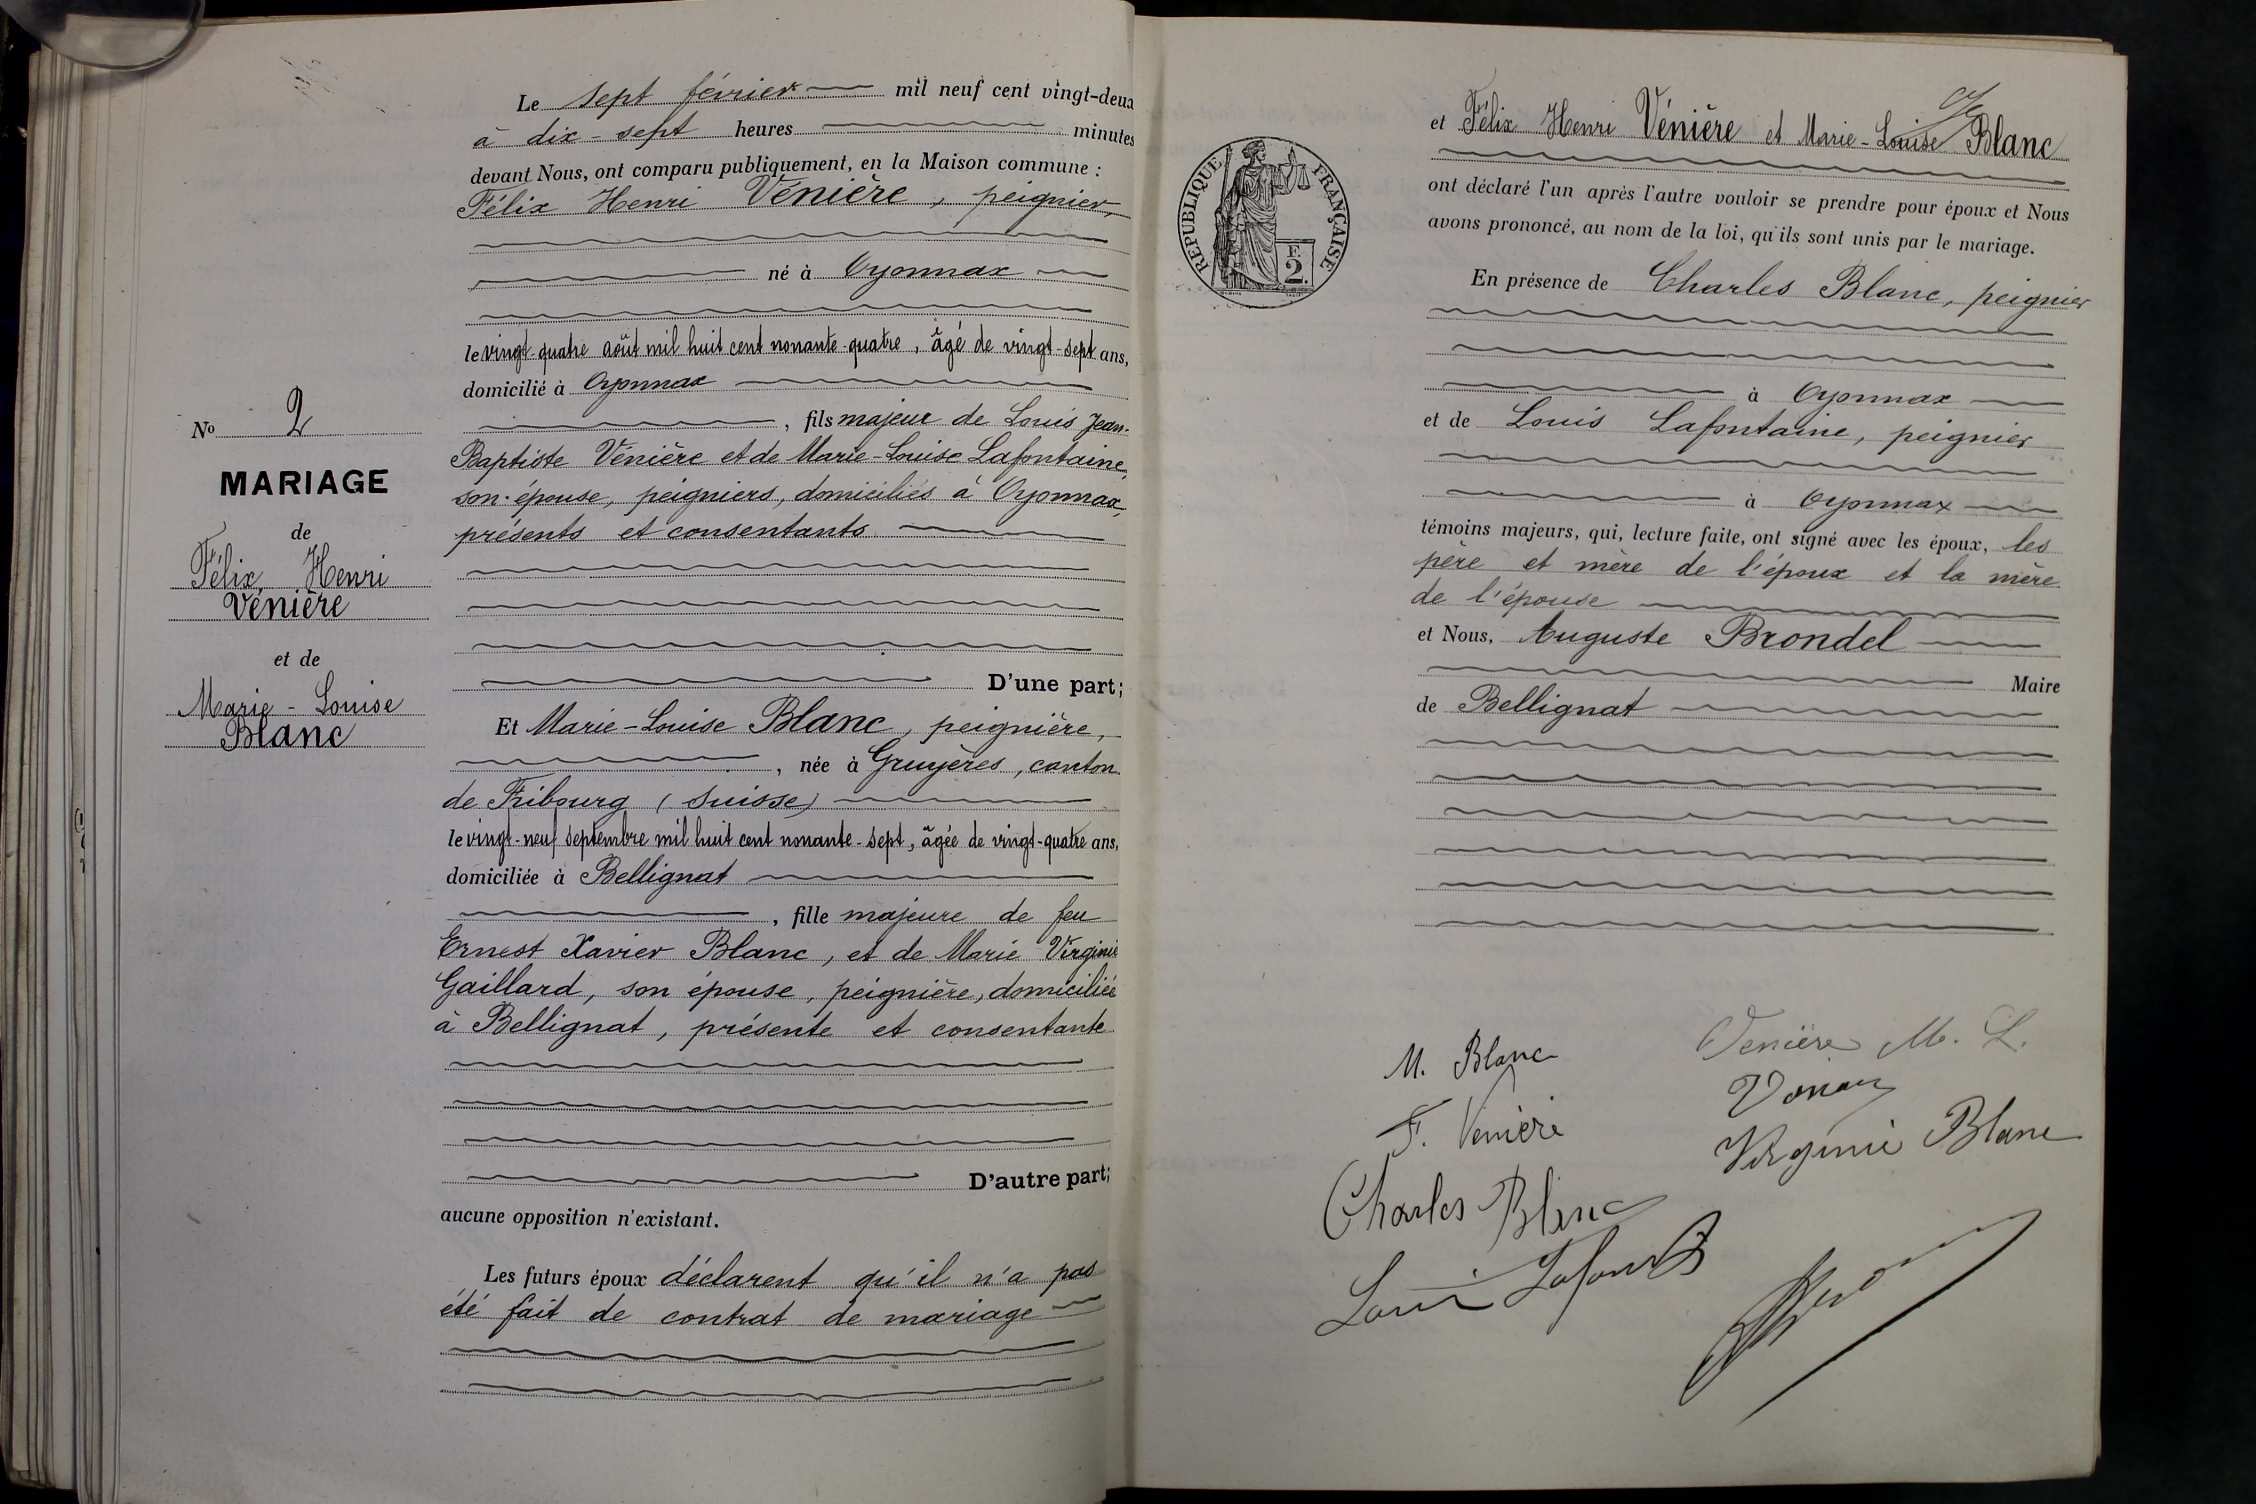 Le sept février mil neuf cent vingt-deux
à dix-sept heures minutes
devant Nous, ont comparu publiquement, en la Maison commune :
Félix Henri Vénière, peignier,
né à Oyonnax
le vingt-quatre août mil huit cent nonante-quatre, âgé de vingt-sept ans,
domicilié à Oyonnax
, fils majeur de Louis Jean-
Baptiste Vénière et de Marie-Louise Lafontaine,
son épouse, peigniers, domiciliés à Oyonnax,
présents et consentants
D'une part;
Nº 2
MARIAGE
de
Félix Henri
Vénière
et de
Marie-Louise
Blanc
Et Marie-Louise Blanc, peignière,
, née à Gruyères, canton
de Fribourg (Suisse)
le vingt-neuf septembre mil huit cent nonante-sept, âgée de vingt-quatre ans,
domiciliée à Bellignat
, fille majeure de feu
Ernest Xavier Blanc, et de Marie Virginie
Gaillard, son épouse, peignière, domiciliée
à Bellignat, présente et consentante
D'autre part;
aucune opposition n'existant.
Les futurs époux déclarent qu'il n'a pas
été fait de contrat de mariage
RÉPUBLIQUE FRANÇAISE
F.
2.
et Félix Henri Vénière et Marie-Louise Blanc
ont déclaré l'un après l'autre vouloir se prendre pour époux et Nous
avons prononcé, au nom de la loi, qu'ils sont unis par le mariage.
En présence de Charles Blanc, peignier
à Oyonnax
et de Louis Lafontaine, peignier
à Oyonnax
témoins majeurs, qui, lecture faite, ont signé avec les époux, les
père et mère de l'époux et la mère
de l'épouse
et Nous, Auguste Brondel
Maire
de Bellignat
M. Blanc
Venière M. L.
F. Venière
Virginie Blanc
Charles Blanc
Louis